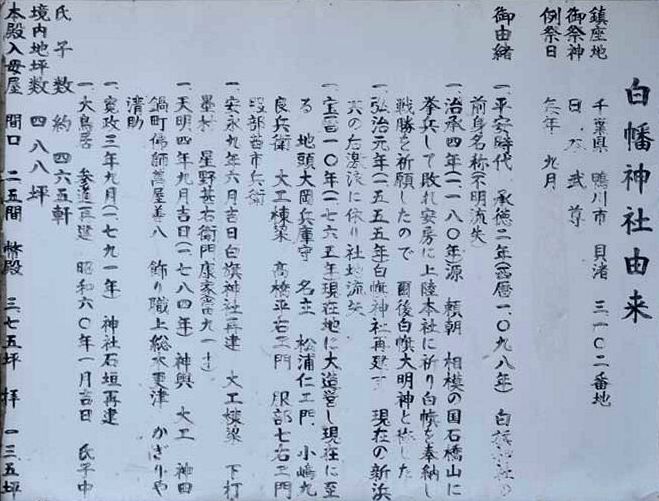 白幡神社由来
鎮座地 千葉県 鴨川市 貝渚 三一〇二番地
御祭神 日本武尊
例祭日 毎年 九月
御由緒 一、平安時代 承徳二年(西暦一〇九八年) 白幡神社の
前身名称(不明流失)
一、治承四年(一一八〇年)源 頼朝 相模の国石橋山に
挙兵して敗れ安房に上陸本社に祈り白幡を奉納し
戦勝を祈願したので 爾後白幡大明神と称した
一、弘治元年(一五五五年白幡神社再建す 現在の新浜
其の后激浪に依り社地流失
一、宝暦一〇年(一七六五年)現在地に大造営し現在に至
る 地頭大岡兵庫守 名主 松浦仁ヱ門 小嶋九
良兵衛 大工棟梁 高橋平右ヱ門 服部七右ヱ門
服部茜市兵衛
一、安永九年六月吉日白旗神社再建 大工棟梁 下打
墨村 星野甚右衛門康家(當九一才)
一、天明四年九月吉日(一七八四年) 神輿 大工 神田
鍋町佛師萬屋善八 飾り職上総木更津 かざりや
清助
一、寛政三年九月(一七九一年) 神社石垣再建
一、大鳥居 参道再建 昭和六〇年一月吉日 氏子中
氏子数 約四六五軒
境内地坪数 四八八坪
本殿入母屋 間口 二五間 幣殿 三七五坪 拝 一三五坪